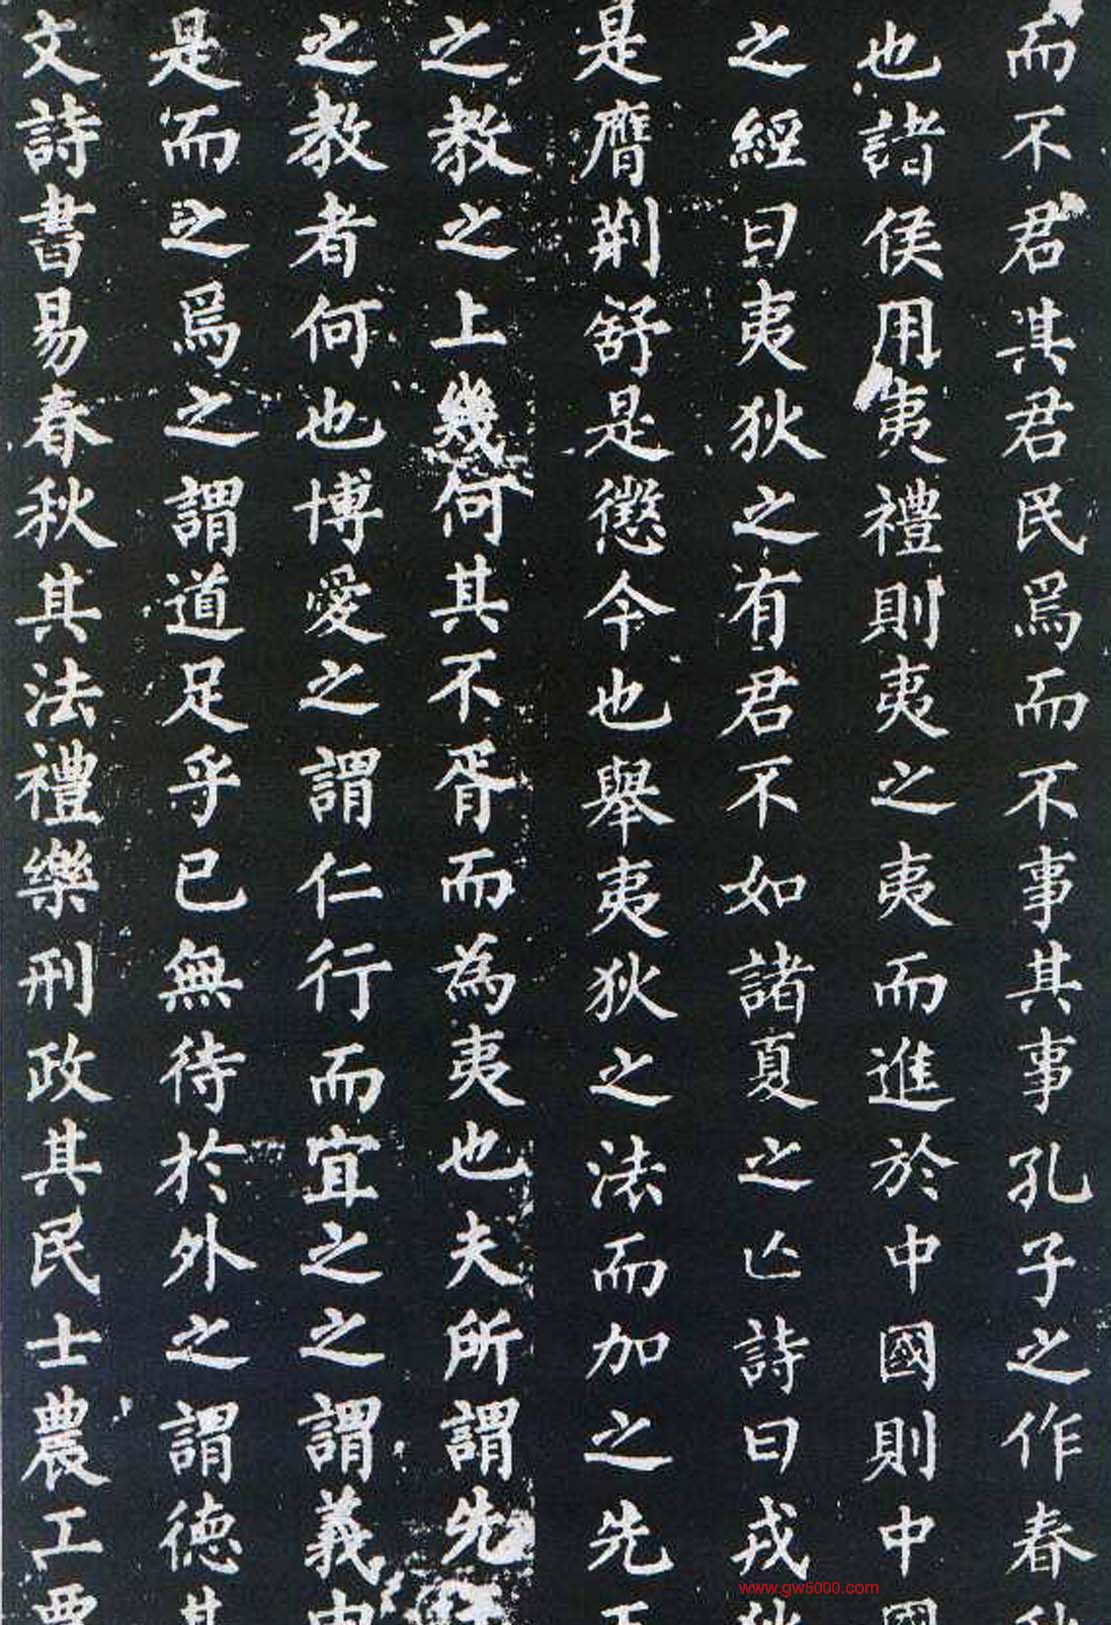 而不君其君民焉而不事其事孔子之作春秋
也諸侯用夷禮則夷之夷而進於中國則中國
之經曰夷狄之有君不如諸夏之亡詩曰戎狄
是膺荆舒是懲今也舉夷狄之法而加之先王
之教之上幾何其不胥而為夷也夫所謂先王
之教者何也博愛之謂仁行而宜之之謂義由
是而之焉之謂道足乎己無待於外之謂德其
文詩書易春秋其法禮樂刑政其民士農工賈
www.gw5000.com